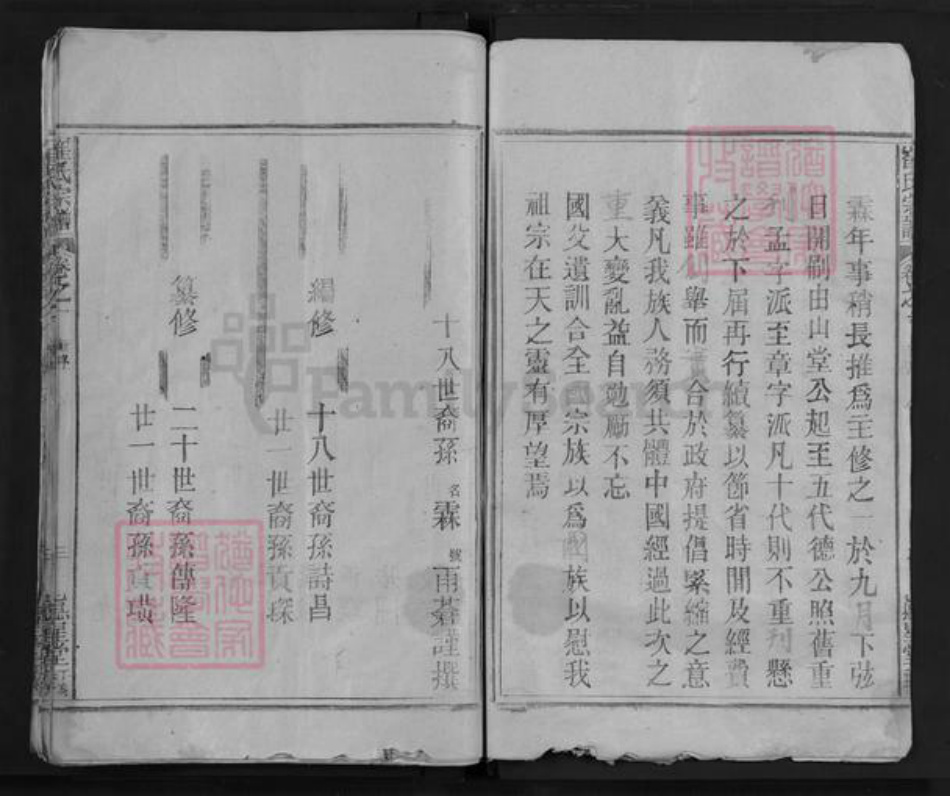 霖年事稍長推爲主修之一於九月下弦
日開刷由山堂公起至五代德公照舊重
刊孟字派至章字派凡十代則不重刊懸
之於下屆再行續纂以節省時間及經費
事雖 舉而 合於政府提倡緊縮之意
義凡我族人務須共體中國經過此次之
重大變亂益自勉勵不忘
國父遺訓合全國宗族以爲國族以慰我
祖宗在天之靈有厚望焉
十八世裔孫 名 霖 號 雨蒼謹撰
編修 十八世裔孫詩昌
廿一世裔孫貢琛
纂修 二十世裔孫傳隆
廿一世裔孫貢璜
羅氏宗譜
FamilySearch